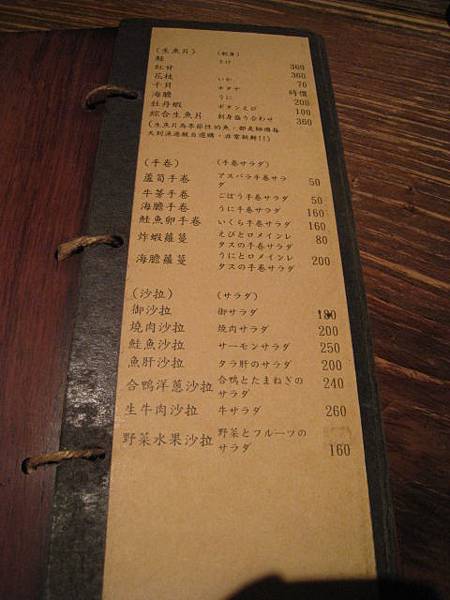 (生魚片) (刺身)
鮭 さけ 360
紅甘 360
花枝 いか 70
干貝 ホタテ 時價
海膽 うに 200
牡丹蝦 ボタンえび 100
綜合生魚片 刺身盛り合わせ 360
(生魚片為季節性的魚，都是師傅每
天到漁港親自選購，非常新鮮!!)
(手卷) (手卷サラダ)
蘆筍手卷 アスパラ手卷サラ
ダ 50
牛蒡手卷 ごぼう手卷サラダ 50
海膽手卷 うに手卷サラダ 160
鮭魚卵手卷 いくら手卷サラダ 160
炸蝦蘿蔓 えびとロメインレ 80
タスの手卷サラダ
海膽蘿蔓 うにとロメインレ 200
タスの手卷サラダ
(沙拉) (サラダ)
御沙拉 御サラダ 180
燒肉沙拉 燒肉サラダ 200
鮭魚沙拉 サーモンサラダ 250
魚肝沙拉 タラ肝のサラダ 200
合鴨洋蔥沙拉 合鴨とたまねぎの 240
サラダ
生牛肉沙拉 牛サラダ 260
野菜水果沙拉 野菜とフルーツの
サラダ 160